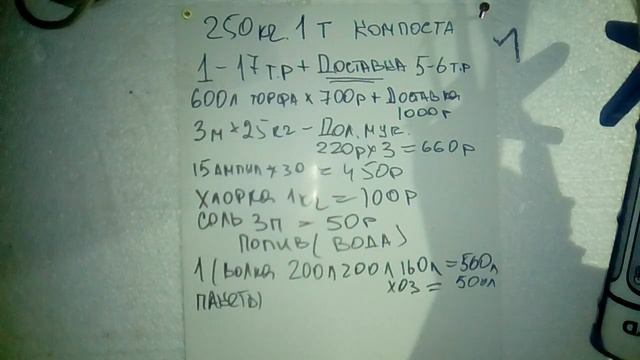 250кг. 1 Т КОМПОСТА
1
1-17 Т.Р + ДОСТАВКА 5-6 Т.Р
600Л ТОРФА × 700Р + ДОСТАВКА
1000Р
3 М × 25 КГ - ДОЛ. МУК.
220Р × 3 = 660Р
15 АМПУЛ × 30 = 450Р
ХЛОРКА 1КГ = 100Р
СОЛЬ 3П = 50Р
ПОЛИВ ( ВОДА )
1 ( 200Л 200Л 160Л = 560Л
ХОЗ = 500Л
ПАКЕТЫ